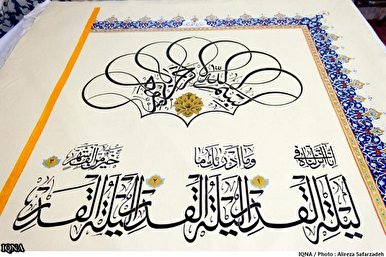 بسم الله الرحمن الرحيم
إنا أنزلناه في ليلة القدر ١ وما أدراك ما ليلة القدر ٢ ليلة القدر خير من ٣
IQNA
IQNA / Photo : Alireza Safarzadeh